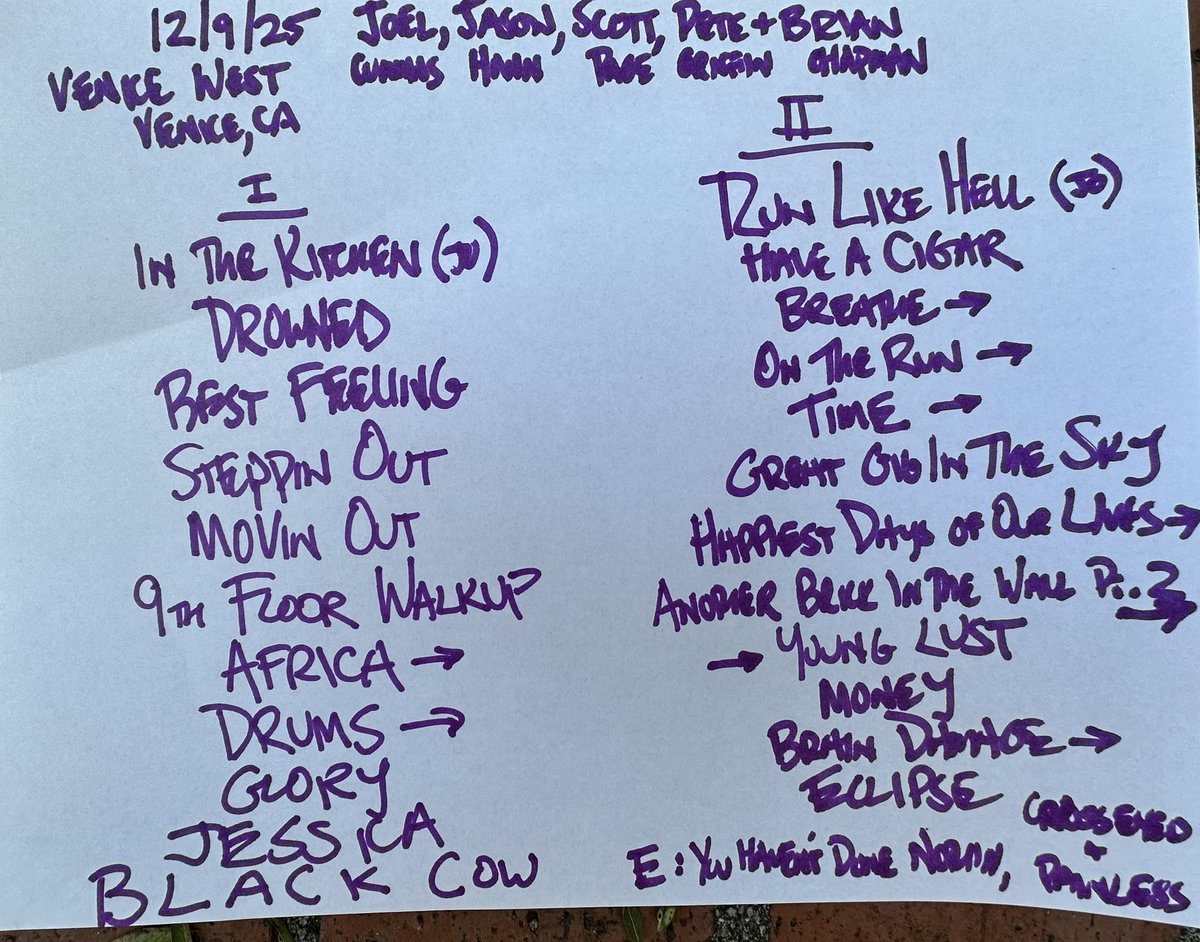 12/9/25 JOEL, JASON, SCOTT, PETE + BRIAN
VENICE WEST CUMMINS HANN PAGE GRIFFIN CHAPMAN
VENICE, CA
I
IN THE KITCHEN (JJ)
DROWNED
BEST FEELING
STEPPIN OUT
MOVIN OUT
9TH FLOOR WALKUP
AFRICA →
DRUMS →
GLORY
JESSICA
BLACK COW
II
RUN LIKE HELL (JJ)
HAVE A CIGAR
BREATHE →
ON THE RUN →
TIME →
GREAT GIG IN THE SKY
HAPPIEST DAYS OF OUR LIVES →
ANOTHER BRICK IN THE WALL PT. 2 →
→ YOUNG LUST
MONEY
BRAIN DAMAGE →
ECLIPSE
E: YOU HAVEN'T DONE NOTHIN, CROSSEYED + PAINLESS